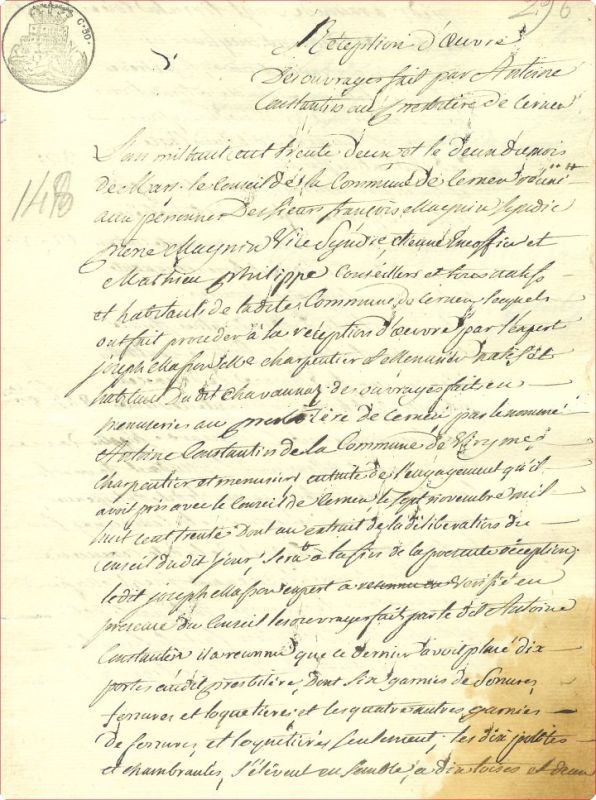 C. 30.
296
Réception d'œuvre
Des ouvrages fait par Antoine
Constantin au Presbitère de Cernex
148
L'an mil huit cent trente deux et le deux du mois
de Mars, le Conseil de la Commune de Cernex réuni
aux personnes des sieurs françois Magnin Syndic
Pierre Magnin Vice Syndic, et
Mathieu Philippe Conseillers et tous natifs
et habitants de ladite Commune de Cernex lesquels
ont fait procéder à la réception d'œuvre par l'expert
joseph Masson Me charpentier & Menusier natif et
habitant du dit Chavannaz des ouvrages faits en
menuseries au presbitère de Cernex par le nommé
Antoine Constantin de la Commune de
charpentier et menusier ensuite de l'engagement qu'il
avoit pris avec le Conseil de Cernex le sept novembre mil
huit cent trente Dont un extrait de la délibération du
Conseil du dit jour, sera à la fin de la présente réception,
ledit joseph Masson expert a reconnu vérifié en
présence du Conseil les ouvrages fait par le dit Antoine
Constantin il a reconnu que ce dernier avoit placé dix
portes audit presbitère, dont six garnies de
serrures et loquetières et les quatre autres garnies
de serrures, et loquetières seulement; les dix portes
et chambranles, s'élèvent ensemble, à dix toises et deux